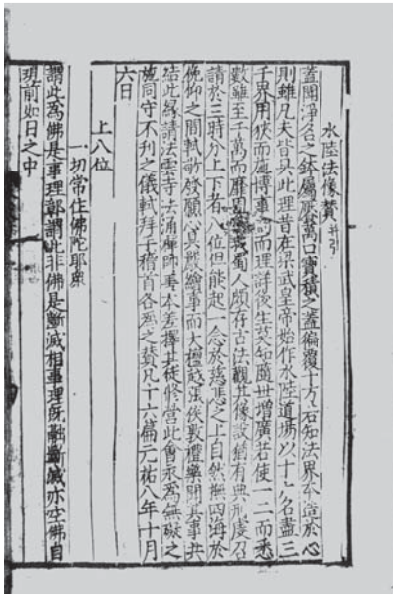 水陸法像贊并引
蓋聞淨名之鉢屬饜萬口寶積之蓋徧覆十方若知法界本造於心
則雖凡夫皆具此理昔在梁武皇帝始作水陸道場以十六名盡三
千界用狹而施博事約而理詳後生莫知隨世增廣若使一二而悉
數雖至千萬而靡周惟我蜀人頗存古法觀其像設猶有典刑虔召
請於三時分上下者八位但能起一念於慈悲之上自然撫四海於
俛仰之間軾敬發願心具嚴繪事而大檀越張侯敦禮樂聞其事共
結此緣請法雲寺法涌禪師善本差擇其徒修營此會永為無礙之
施同守不刊之儀軾拜手稽首各為之贊凡十六篇元祐八年十月
六日
上八位
一切常住佛陀耶衆
謂此為佛是事理鄣謂此非佛是斷滅相事理既融斷滅亦空佛自
現前如日之中